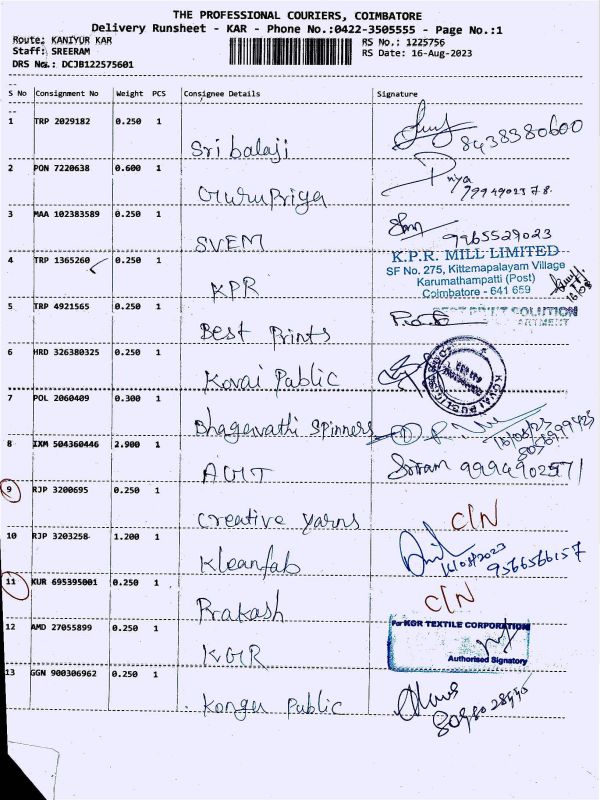 THE PROFESSIONAL COURIERS, COIMBATORE
Delivery Runsheet - KAR - Phone No.:0422-3505555 - Page No.:1
Route: KANIYUR KAR
RS No.: 1225756
Staff: SREERAM
RS Date: 16-Aug-2023
DRS No.: DCJB122575601
S No Consignment No Weight PCS Consignee Details Signature
1 TRP 2029182 0.250 1
Sri balaji 8438380600
2 PON 7220638 0.600 1
Guru Priya Priya
3 MAA 102383589 0.250 1
SVEM 9965529023
4 TRP 1365260 0.250 1
KPR
K.P.R. MILL LIMITED
SF No. 275, Kittampalayam Village
Karumathampatti (Post)
Coimbatore - 641 659
5 TRP 4921565 0.250 1
Best Prints
BEST PRINT SOLUTION
6 HRD 326380325 0.250 1
Kovai Public
KOVAI PUBLIC
7 POL 2060409 0.300 1
Bhagavathi Spinners 16/08/23
8 IXM 504360446 2.900 1
AGT Sriram 9994902571
9 RJP 3200695 0.250 1
Creative Yarns C/N
10 RJP 3203258 1.200 1
Kleanfab 16/08/2023 9566566157
11 KUR 695395001 0.250 1
Prakash C/N
12 AMD 27055899 0.250 1
KGR
For KGR TEXTILE CORPORATION
Authorised Signatory
13 GGN 900306962 0.250 1
Kongu Public